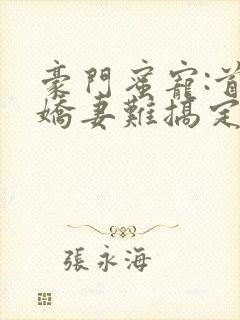 豪門蜜寵:首
嬌妻難搞定
張永海